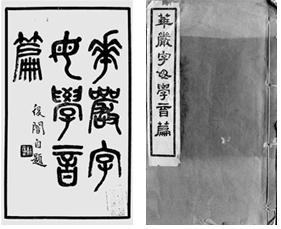 華嚴字
母學音
篇
後閒自題
華嚴字母學音篇